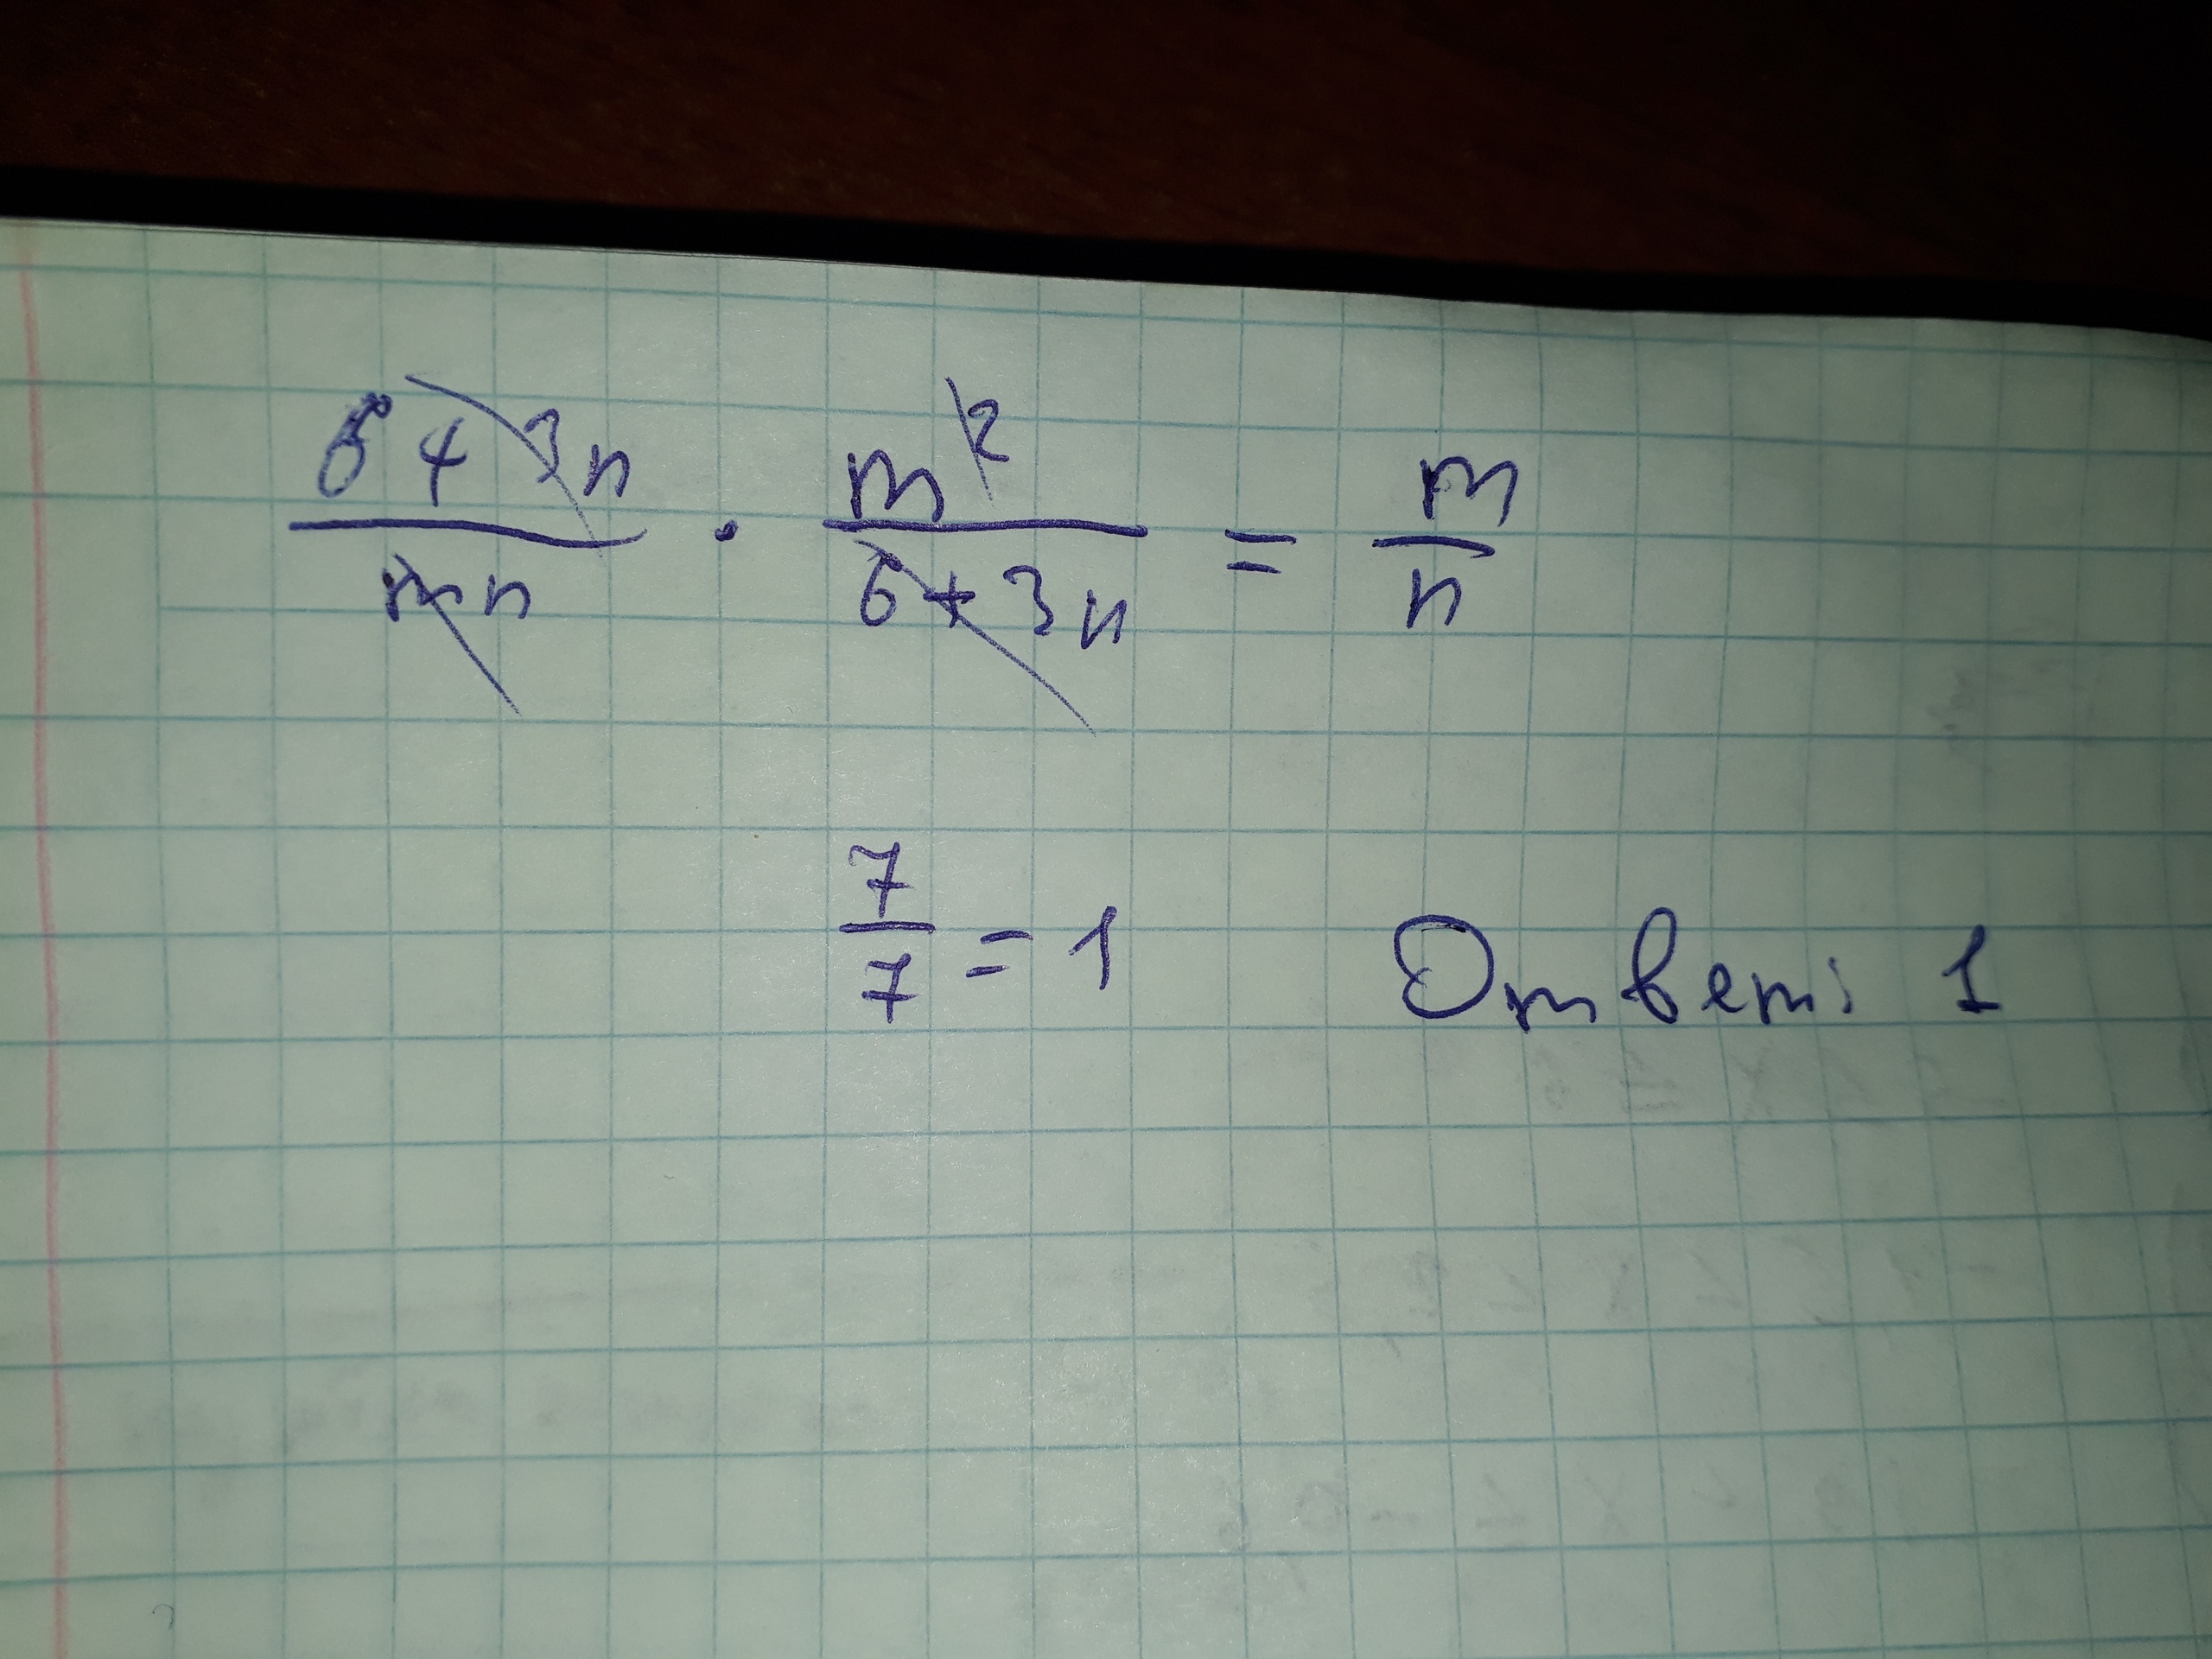 6 + 3n / mn · m² / 6 + 3n = m / n
7 / 7 = 1 Ответ: 1